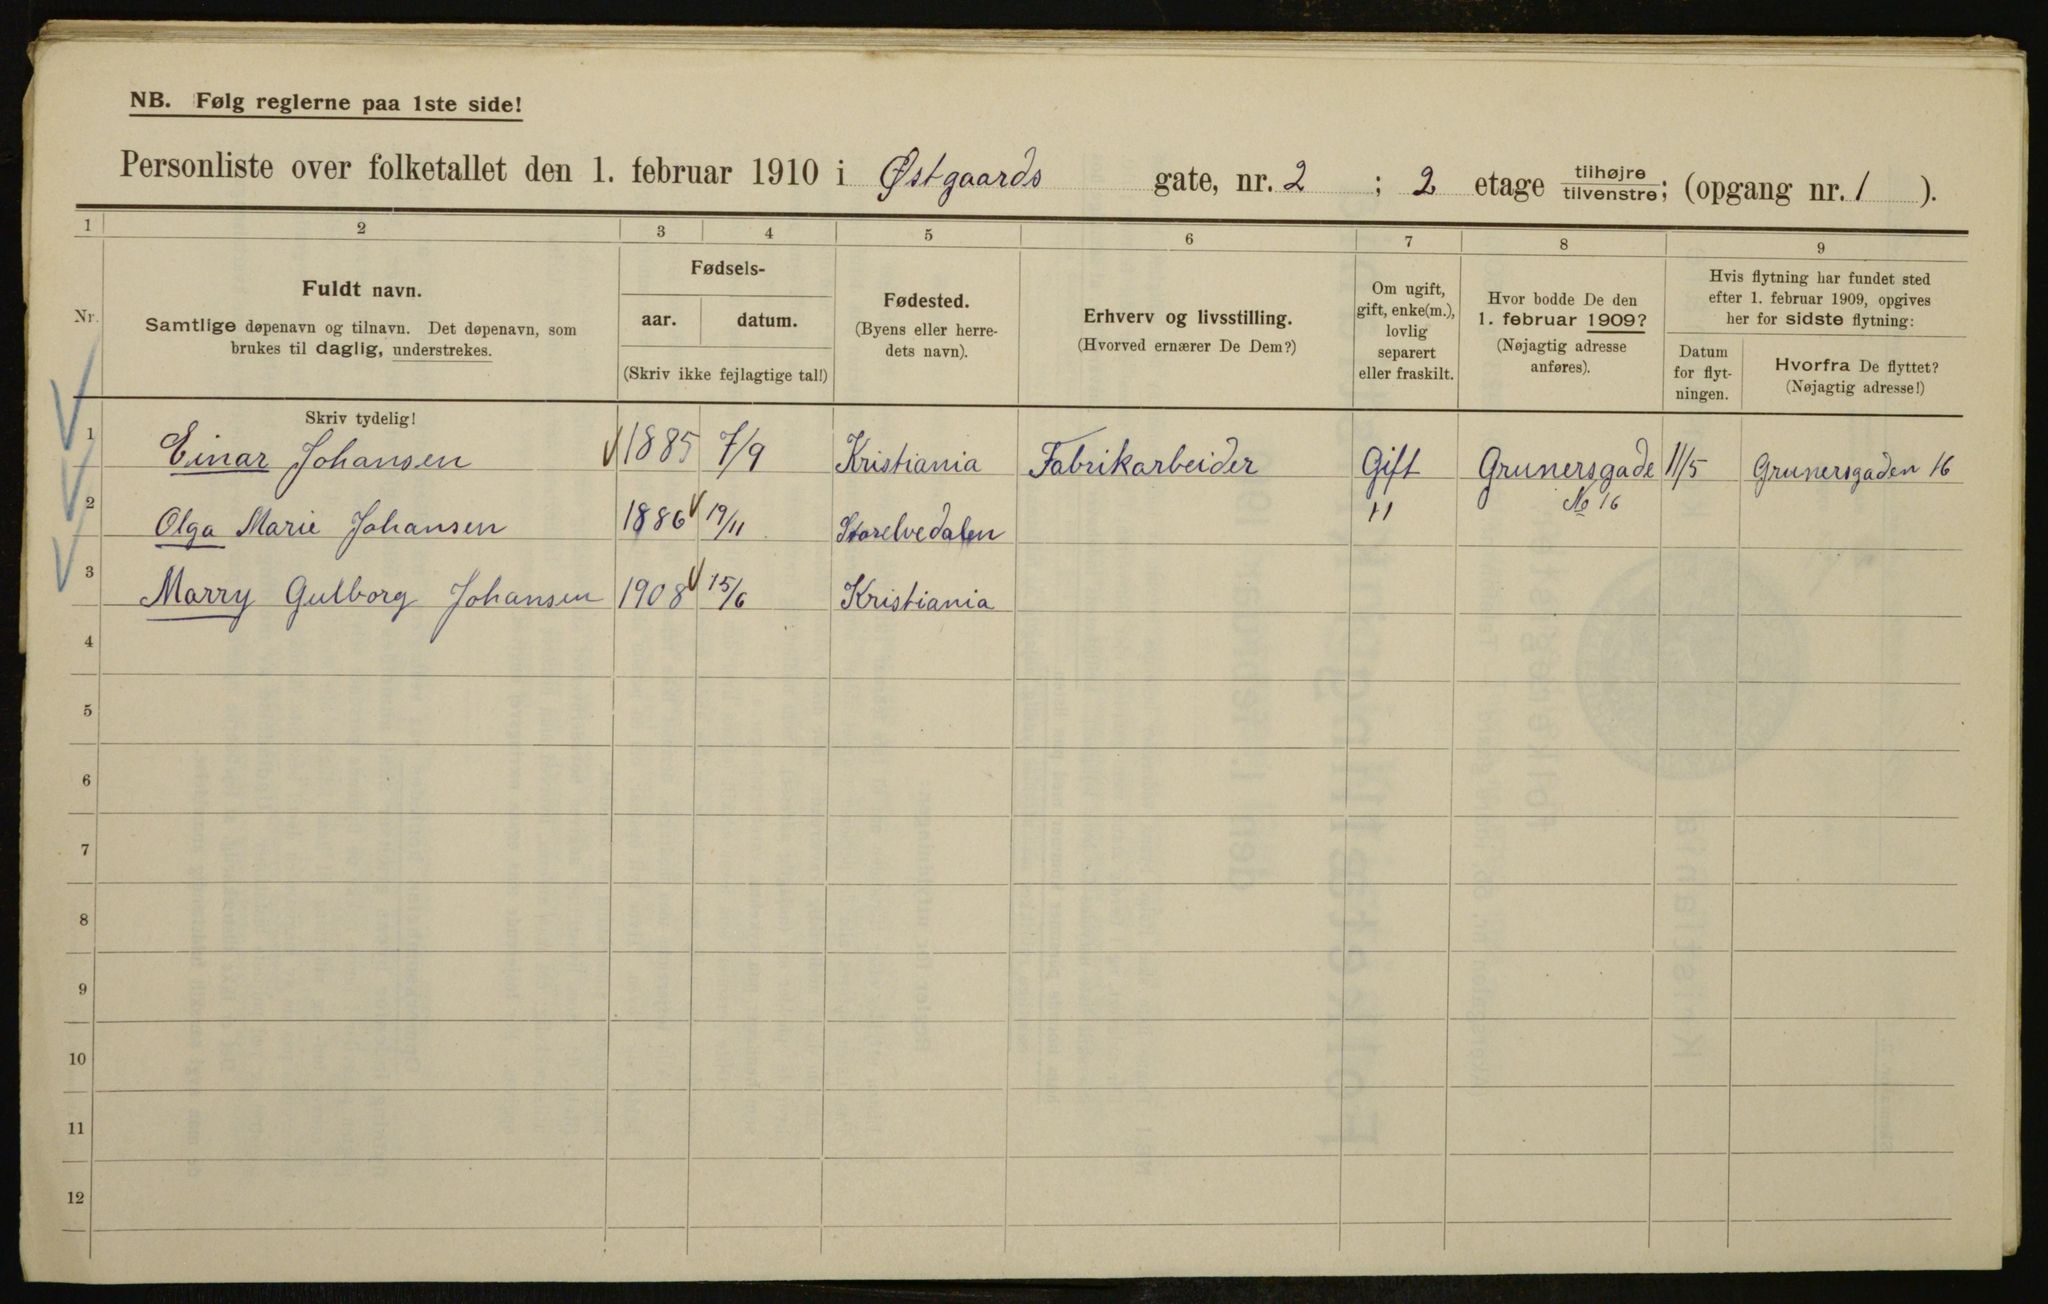 NB. Følg reglerne paa 1ste side!
Personliste over folketallet den 1. februar 1910 i Østgaards gate, nr. 2 ; 2 etage tilhøjre tilvenstre; (opgang nr. 1 ).
1 2 3 4 5 6 7 8 9
Nr.
Fuldt navn.
Samtlige døpenavn og tilnavn. Det døpenavn, som
brukes til daglig, understrekes.
Fødsels-
aar. datum.
(Skriv ikke fejlagtige tal!)
Fødested.
(Byens eller herre-
dets navn).
Erhverv og livsstilling.
(Hvorved ernærer De Dem?)
Om ugift,
gift, enke(m.),
lovlig
separert
eller fraskilt.
Hvor bodde De den
1. februar 1909?
(Nøjagtig adresse
anføres).
Hvis flytning har fundet sted
efter 1. februar 1909, opgives
her for sidste flytning:
Datum
for flyt-
ningen.
Hvorfra De flyttet?
(Nøjagtig adresse!)
Skriv tydelig!
1 Einar Johansen 1885 7/9 Kristiania Fabrikarbeider Gift Grunersgade 11/5 Grunersgaden 16
No 16
2 Olga Marie Johansen 1886 19/11 Storelvedalen "
3 Marry Gulborg Johansen 1908 15/6 Kristiania
4
5
6
7
8
9
10
11
12